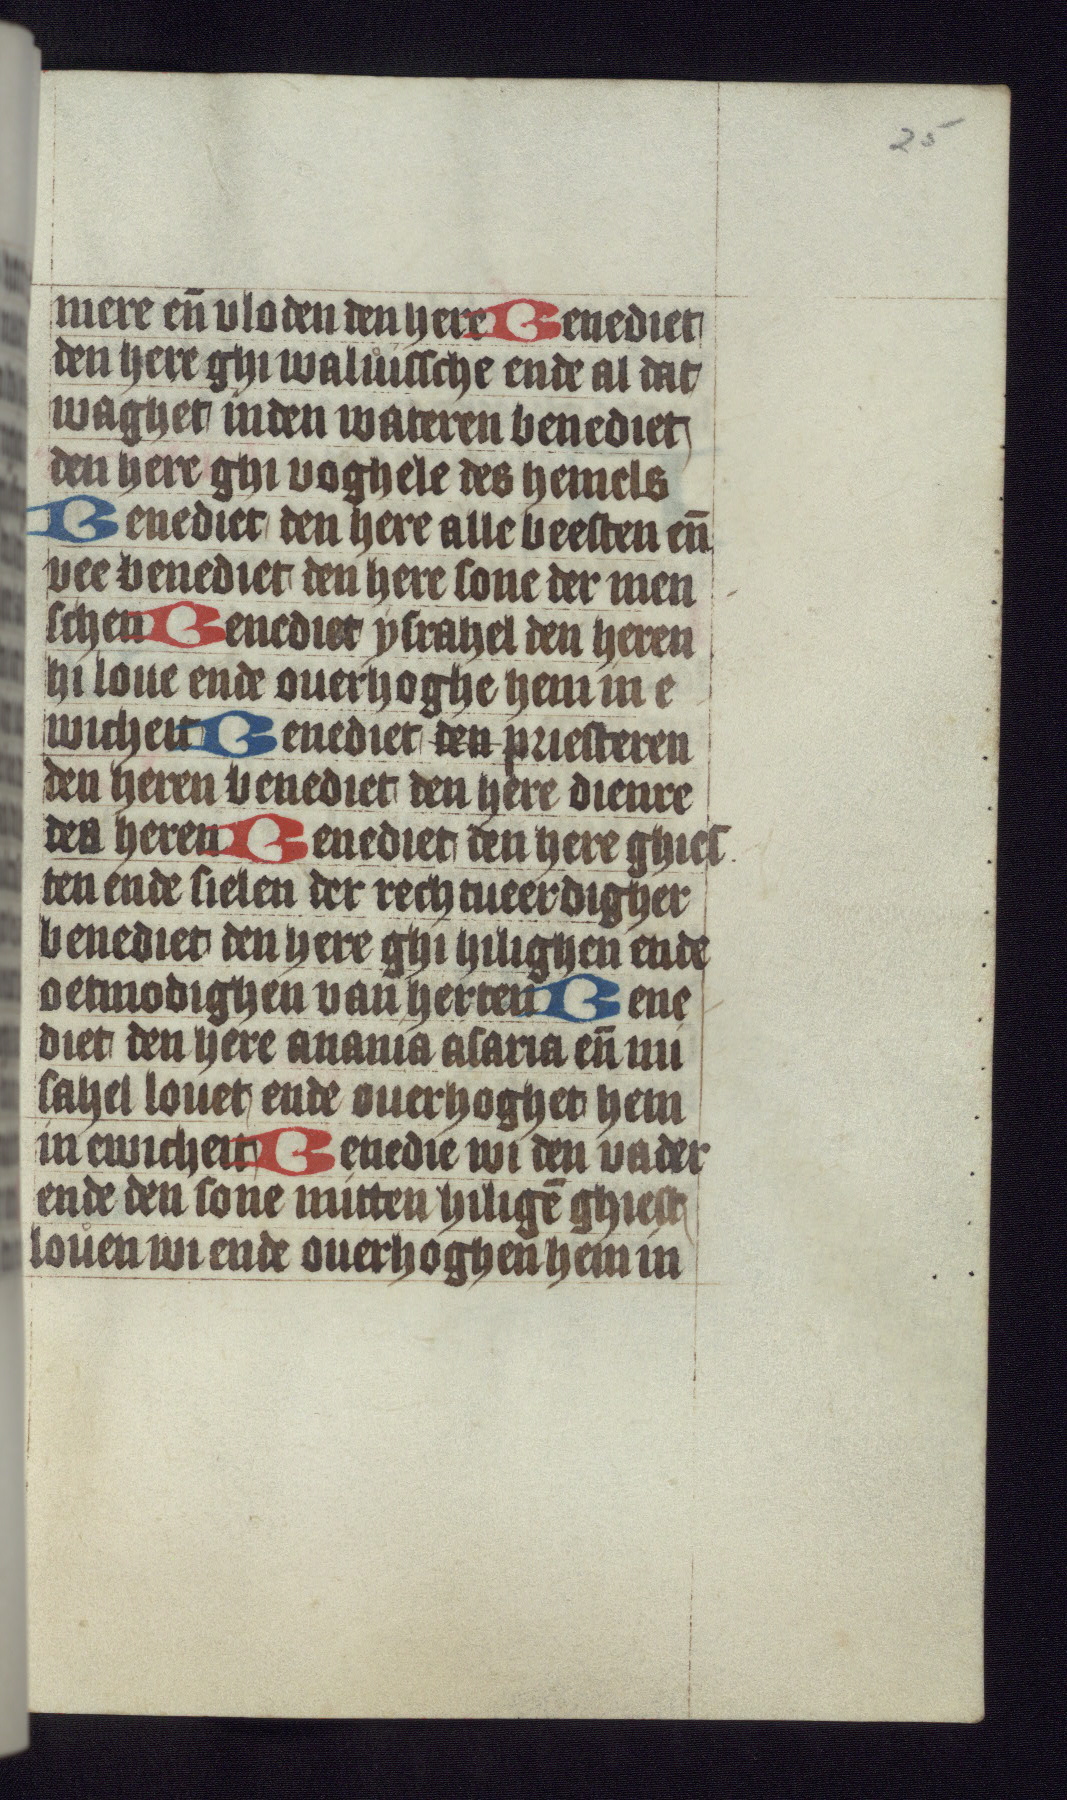 25
mere en̄ vloden den here Benediet
den here ghi waluissche ende al dat
waghet in den wateren benediet
den here ghi voghele des hemels
Benediet den here alle beesten en̄
vee benediet den here sone der men
schen Benediet ysrahel den heren
hi loue ende ouerhoghe hem in e
wicheit Benediet den priesteren
den heren benediet den here dienre
des heren Benediet den here ghies
ten ende sielen der rechtueerdigher
benediet den here ghi hilighen ende
oetmodighen van herten Bene
diet den here anania asaria en̄ mi
sahel louet ende ouerhoghet hem
in ewicheit Benedie wi den vader
ende den sone mitten hiligē ghiest
louen wi ende ouerhoghen hem in